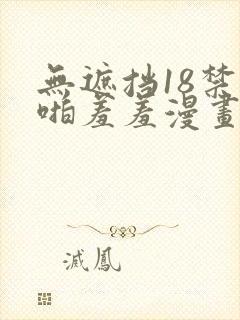 無遮挡18禁
啪羞羞漫畫
滅鳳